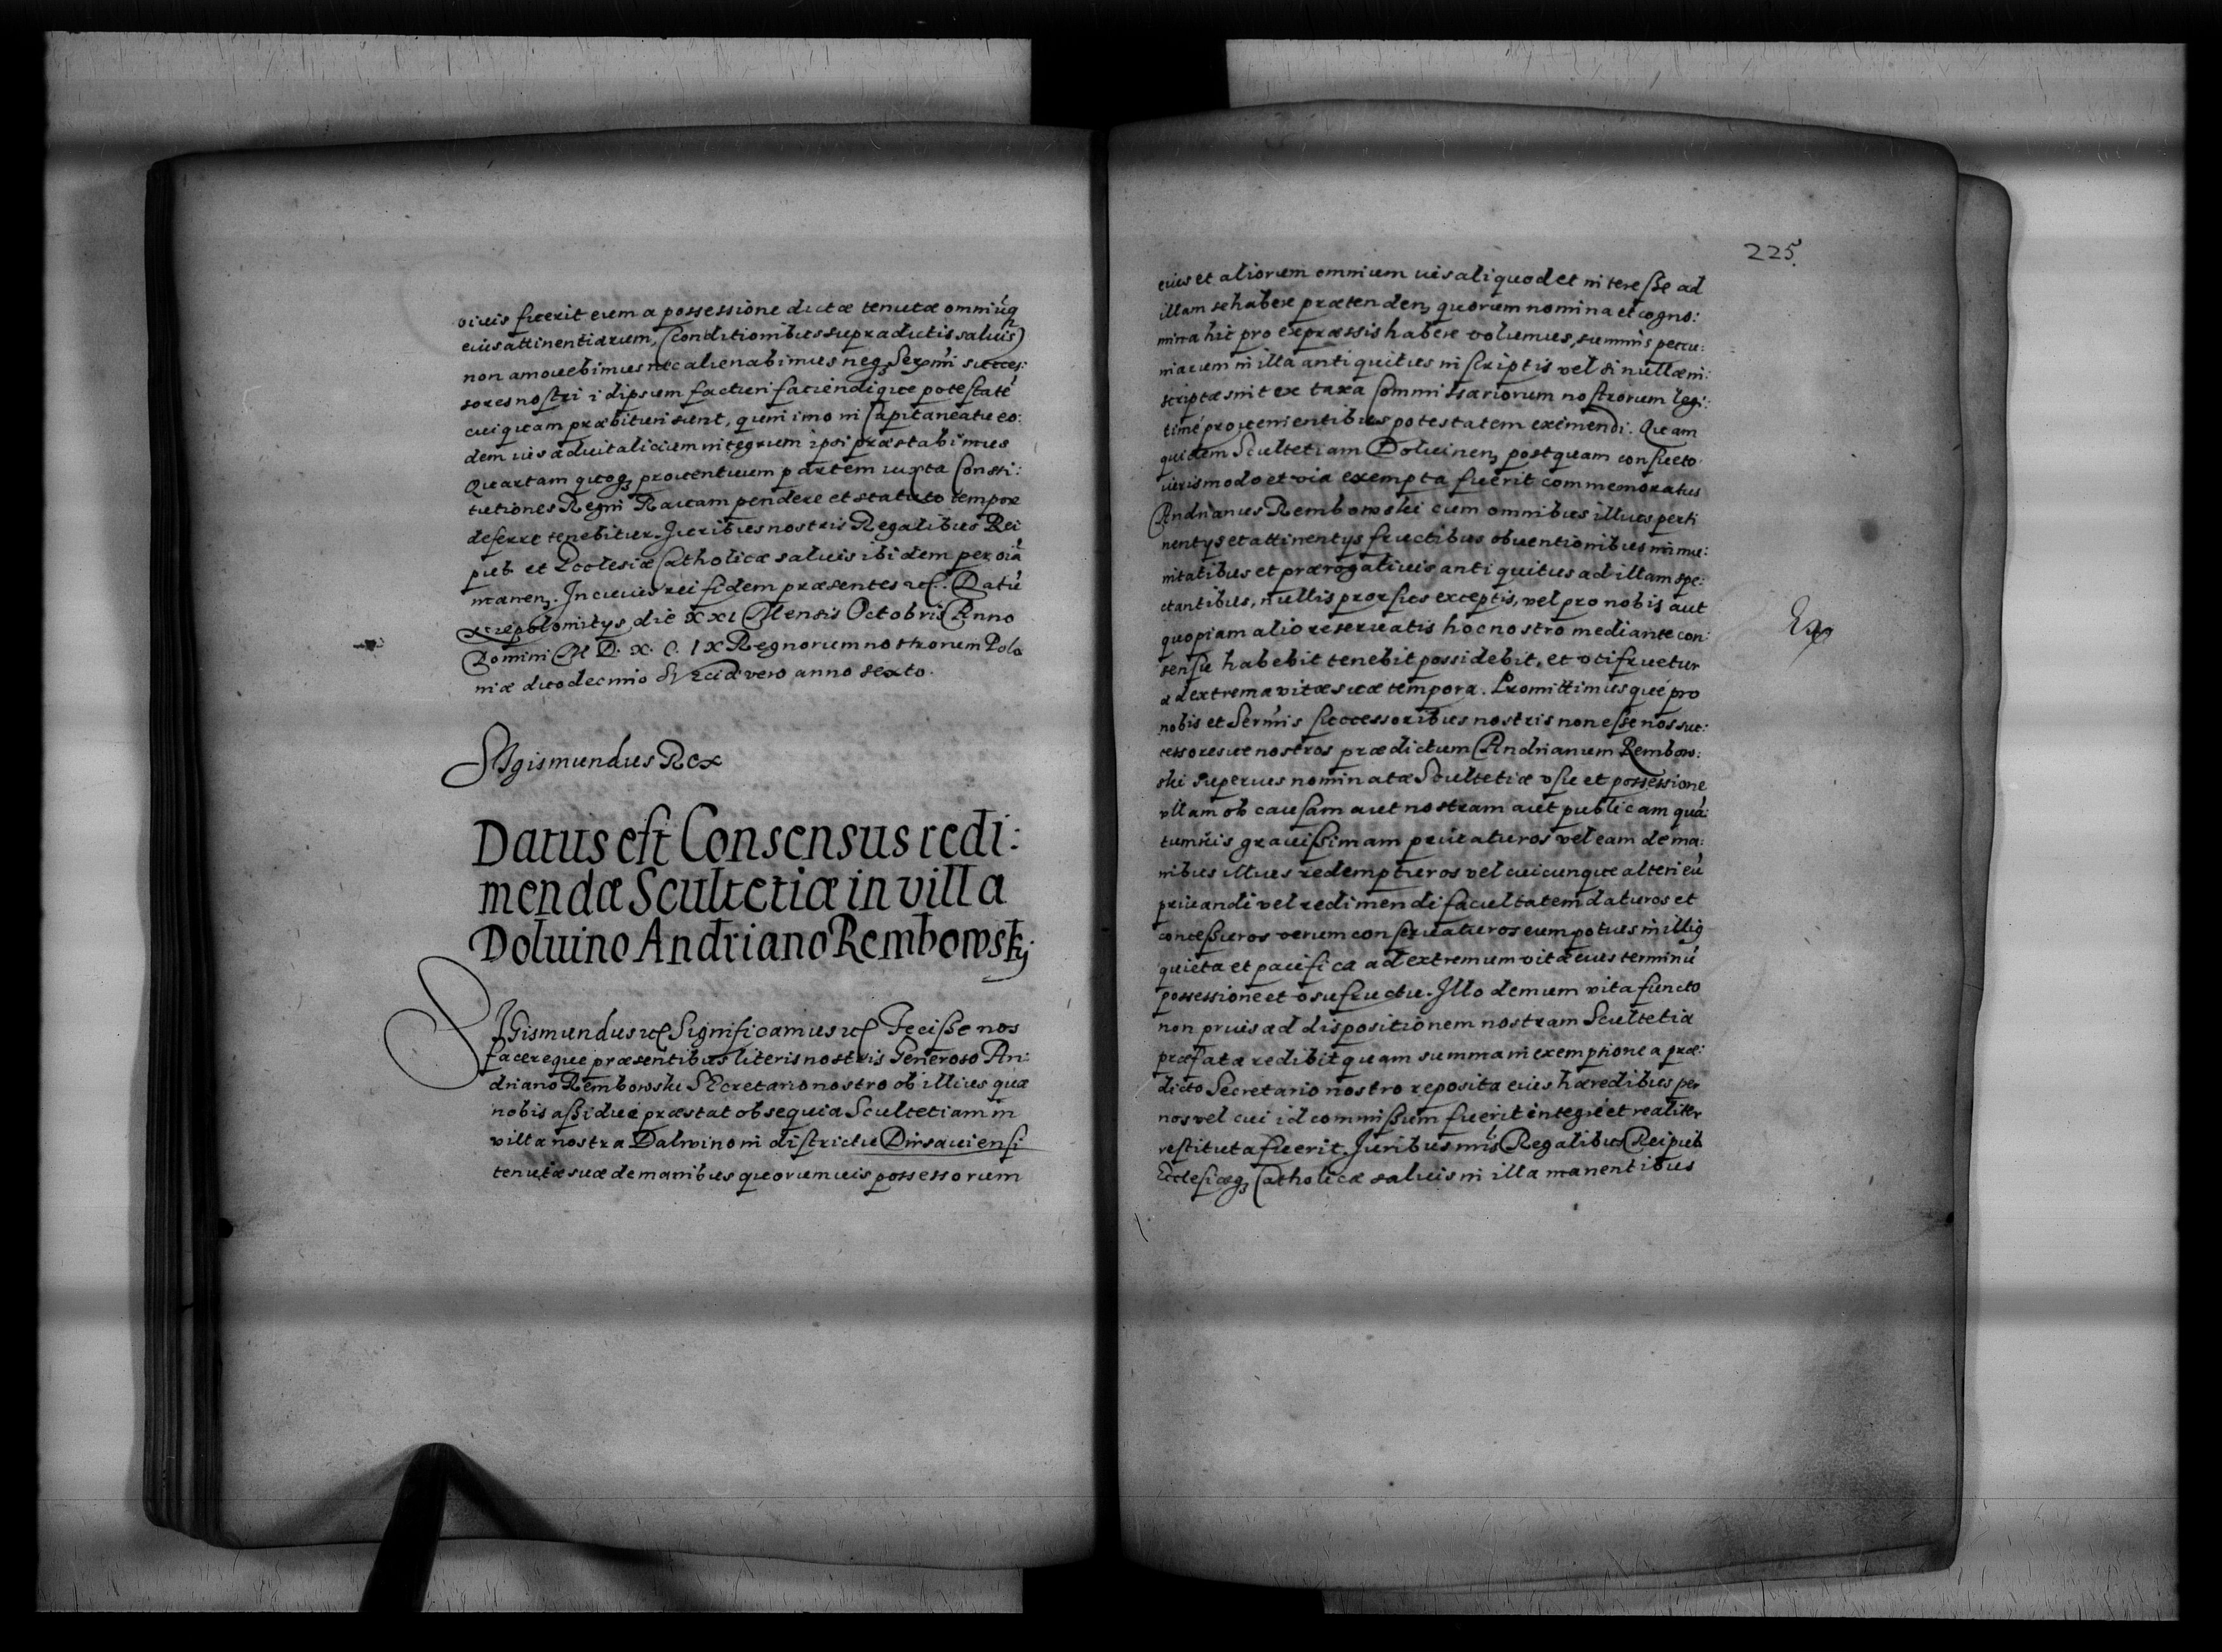 oiuis fuerit eum a possessione dictæ tenutæ omniūq
eius attinentiarum, (Conditionibus supradictis saluis)
non amouebimus nec alienabimus neq₃ Serx̄mi succes:
sores nostri idipsum facturi faciendique potestatē
cuiquam præbituri sunt, quin imo in Capitaneatu eo:
dem ius aduitalicium integrum ipsi præstabimus
Quartam quoq₃ prouentuum partem iuxta Consti:
tutiones Regni Rauam pendere et statuto tempore
deferre tenebitur. Juribus nostris Regalibus Rei
pub. et Ecclesiæ Catholicæ saluis ibidem per oīa
manen₃. In cuius rei fidem præsentes etc. Datū
die XXI Mensis Octobris Anno
Domini M D. X. C. IX Regnorum nostrorum Polo
niæ duodecimo Sueciæ vero anno sexto.
SIgismundus Rex
Datus est Consensus redi:
mendæ Scultetiæ in villa
Doluino Andriano Rembowskÿ
SIGismundus etc Significamus etc Fecisse nos
facereque præsentibus literis nostris Generoso An:
driano Rembowski SEcretario nostro ob illius quæ
nobis assidue præstat obsequia Scultetiam in
villa nostra Dalwino in districtu Dirsauiensi
tenutæ suæ de manibus quorumuis possessorum
225.
eius et aliorum omnium ius aliquod et interesse ad
illam se habere prætenden₃ quorum nomina et cogno:
mina hic pro expræssis habere volumus, summis pecu:
niarum in illa antiquitus inscriptis vel si nullæ in:
scriptæ sint ex taxa Commissariorum nostrorum legi:
timé prouenientibus potestatem eximendi. Quam
quidem Scultetiam Doluinen₃ postquam consueto
iuris modo et via exempta fuerit commemoratus
Andrianus Rembowski cum omnibus illius perti
nentijs et attinentijs fructibus obuentionibus immu:
nitatibus et prærogatiuis antiquitus ad illam spe:
ctantibus, nullis prorsus exceptis, vel pro nobis aut
quopiam alio reseruatis hoc nostro mediante con:
sensu habebit tenebit possidebit, et vtifruetur
ad extrema vitæ suæ tempora. Promittimusque pro
nobis et Serm̄is successoribus nostris non esse nos suc:
cessoresue nostros prædictum Andrianum Rembow:
ski superius nominatæ Scultetiæ vsu et possessione
vllam ob causam aut nostram aut publicam quā:
tumuis grauissimam priuaturos vel eam de ma:
nibus illius redempturos vel cuicunque alteri eū
priuandi vel redimendi facultatem daturos et
concessuros verum conseruaturos eum potius in illiꝯ
quieta et pacifica ad extremum vitæ eius terminū
possessione et vsufructu. Illo demum vita functo
non prius ad dispositionem nostram Scultetia
præfata redibit quam summa in exemptione a præ:
dicto Secretario nostro reposita eius hæredibus per
nos vel cui id commissum fuerit integrè et realiter
restituta fuerit. Juribus nr̄is Regalibus Reipub
Ecclesiæq₃ Catholicæ saluis in illa manentibus